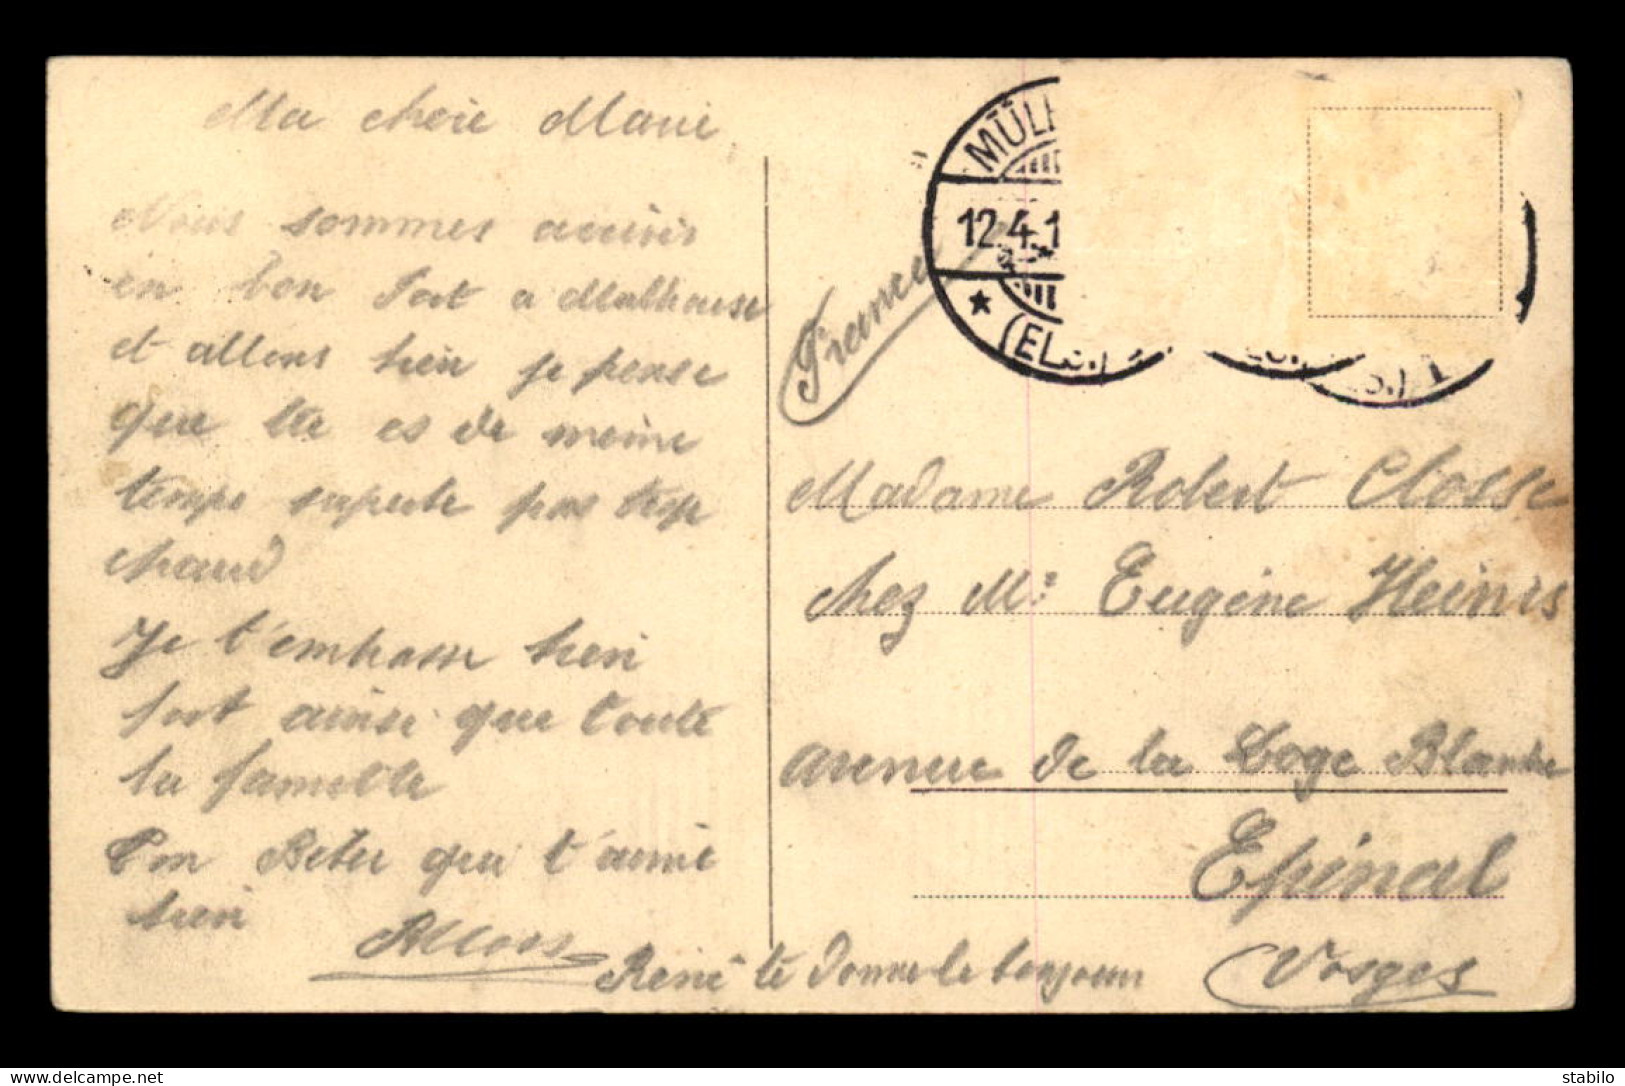 Ma cheie Marie
Nous sommes arrivés
en bon Port a Mulhouse
et allons bien je pense
que tu es de meme
temps pas trop
chaud
Je t'embrasse bien
fort ainsi que toute
la famille
Ton qui t'aime
bien
René te donne le bonjour
France
MÜLH
12.4.1
(ELS.)
S.) 1
Madame Robert Closse
chez Mr Eugène Heinis
avenue de la Loge Blanche
Epinal
Vosges
stabilo